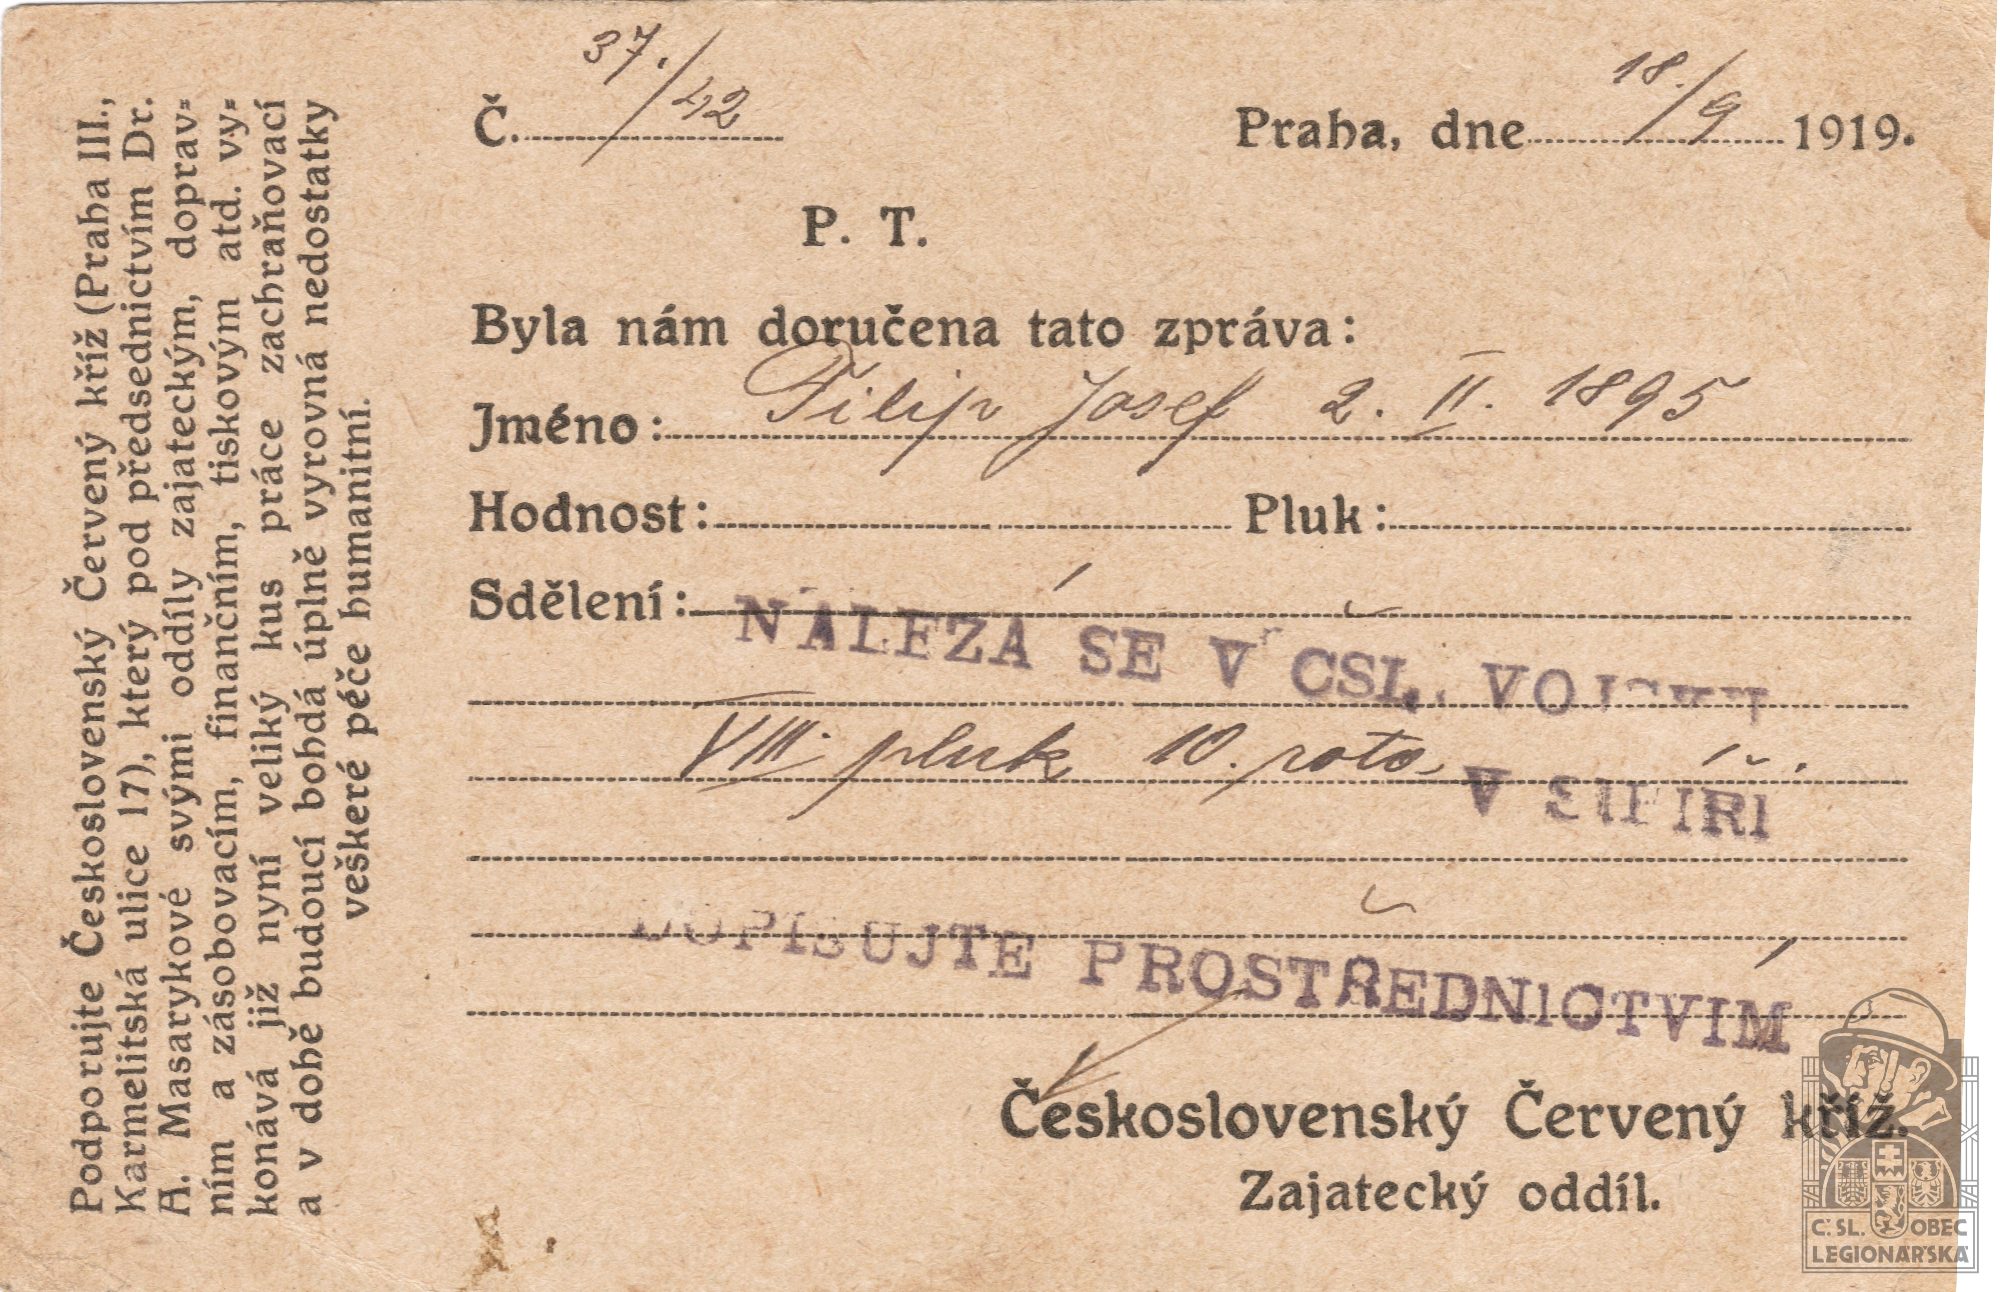 Podporujte Československý Červený kříž (Praha III.,
Karmelitská ulice 17), který pod předsednictvím Dr.
A. Masarykové svými oddíly zajateckým, doprav-
ním a zásobovacím, finančním, tiskovým atd. vy-
konává již nyní veliký kus práce zachraňovací
a v době budoucí bohdá úplně vyrovná nedostatky
veškeré péče humanitní.
Č. 37./42
Praha, dne 18./9 1919.
P. T.
Byla nám doručena tato zpráva:
Jméno: Filip Josef 2. II. 1895
Hodnost: Pluk:
Sdělení:
NALÉZÁ SE V ČSL. VOJSKU
VIII. pluk 10. rota V SIBIŘI
DOPISUJTE PROSTŘEDNICTVÍM
Československý Červený kříž.
Zajatecký oddíl.
Č. SL. OBEC
LEGIONÁŘSKÁ